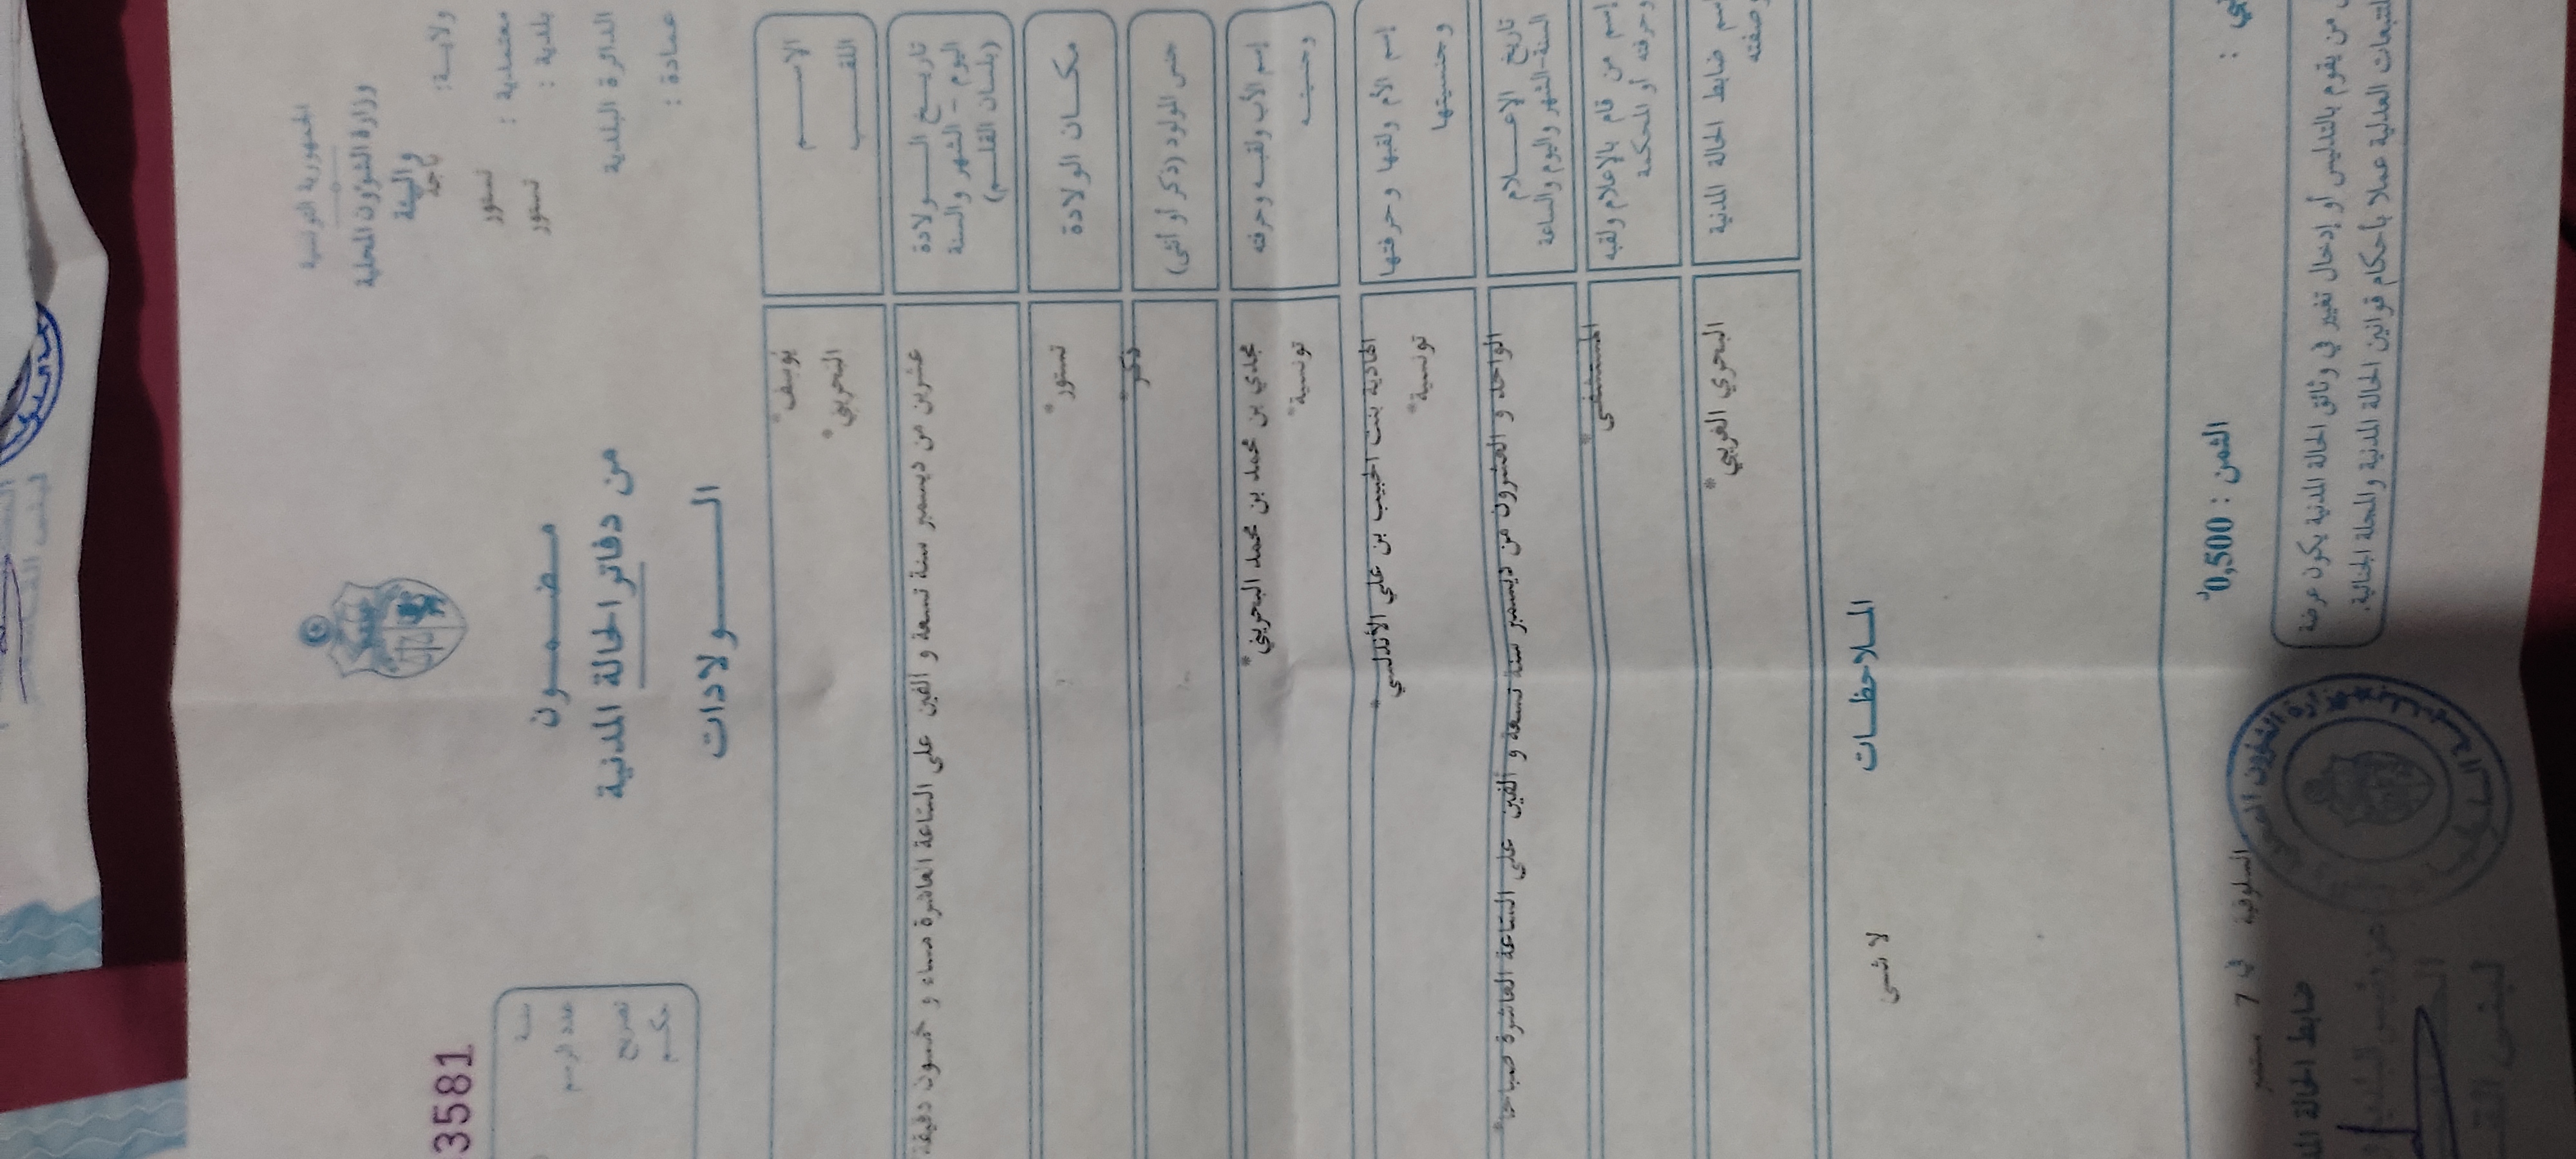 الجمهورية التونسية
وزارة الشؤون المحلية
والبيئة
ولاية : باجة
معتمدية : تستور
بلدية : تستور
الدائرة البلدية
عمادة :
3581
مضمون
من دفاتر الحالة المدنية
الولادات
سنة
عدد الرسم
تصريح
حكم
الاسم يوسف*
اللقب البحريني*
تاريخ الولادة
اليوم - الشهر والسنة
(بلسان القلم)
عشرين من ديسمبر سنة تسعة و الفين على الساعة العاشرة مساء و خمسون دقيقة
مكان الولادة تستور*
جنس المولود (ذكر أو أنثى) ذكر*
إسم الأب ولقبه وحرفته مجدي بن محمد بن محمد البحريني*
وجنسيته تونسية*
إسم الأم ولقبها وحرفتها الهادية بنت الحبيب بن علي الأندلسي*
وجنسيتها تونسية*
تاريخ الإعلام
السنة-الشهر واليوم والساعة
الواحد و العشرون من ديسمبر سنة تسعة و الفين على الساعة العاشرة صباحا*
إسم من قام بالإعلام ولقبه المستشفى*
وحرفته أو المحكمة
إسم ضابط الحالة المدنية البحري الغربي*
وصفته
الملاحظات
لا شيء
الثمن : 0,500د
السلوقية في 7 سبتمبر
من يقوم بالتدليس أو إدخال تغيير في وثائق الحالة المدنية يكون عرضة
للتتبعات العدلية عملا بأحكام قوانين الحالة المدنية والمجلة الجنائية.
ضابط الحالة